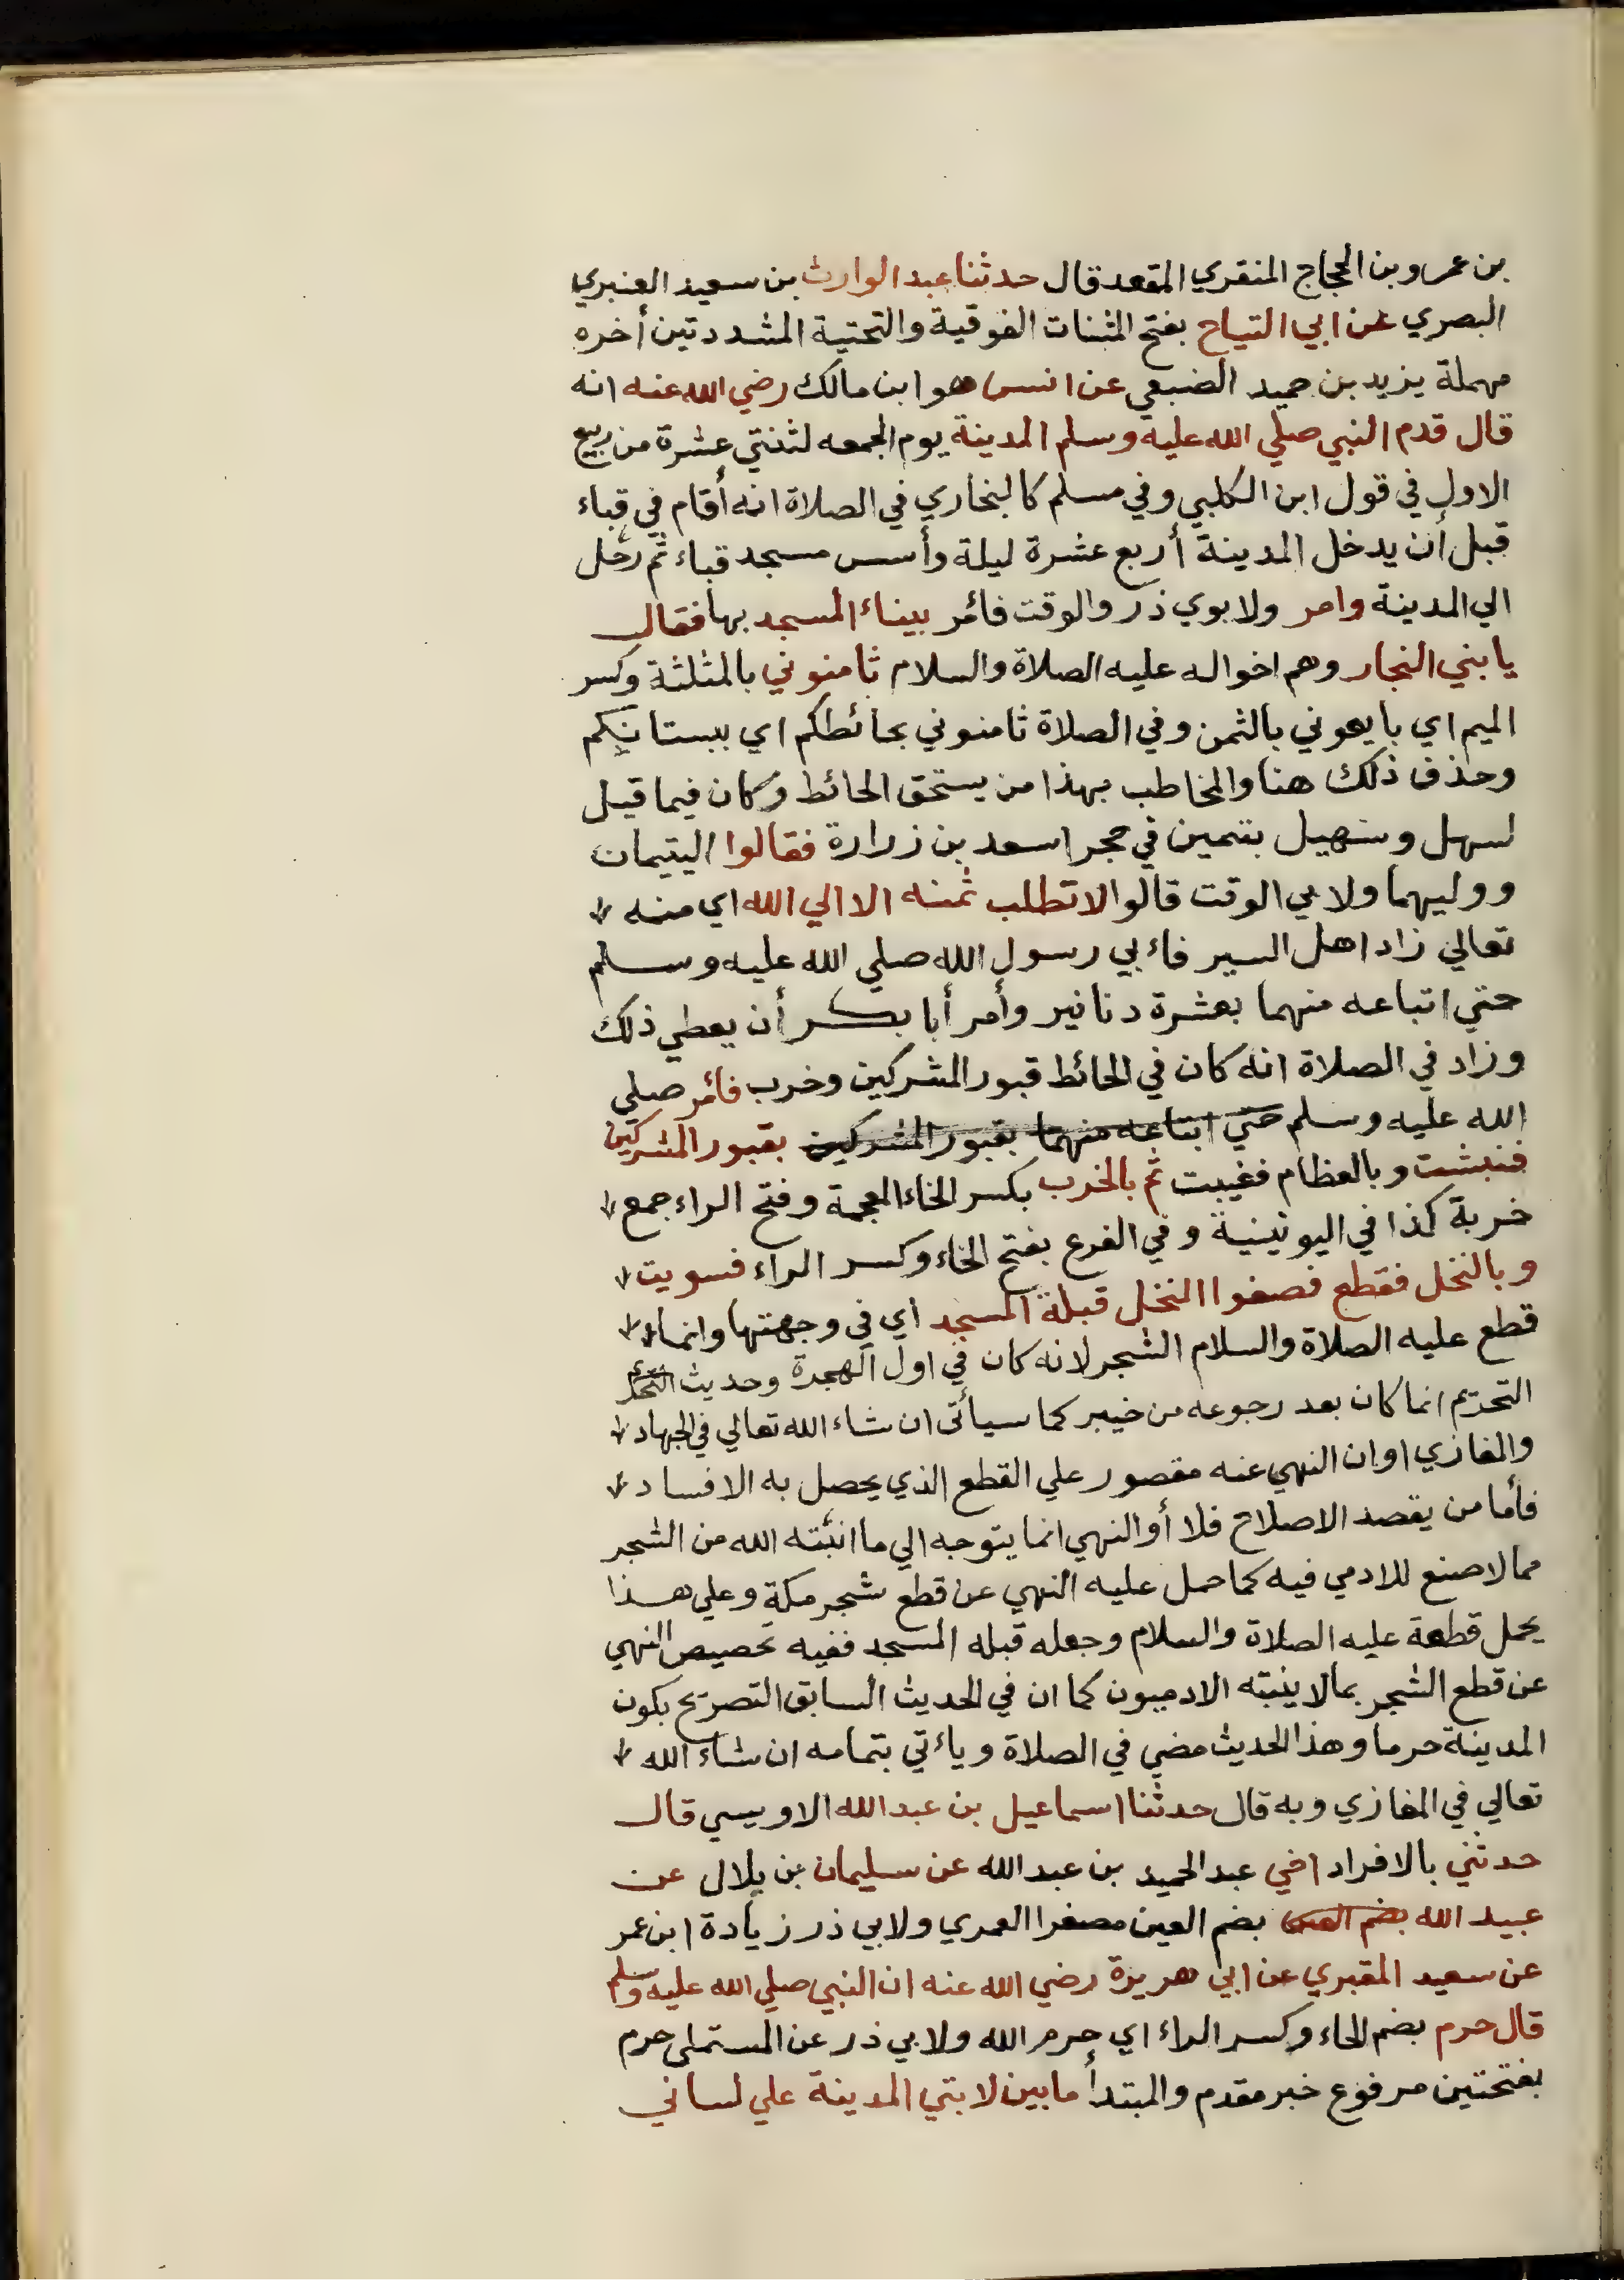 بن عمرو بن الحجاج المنقري المقعد قال حدثنا عبد الوارث بن سعيد العنبري
البصري عن ابي التياح بفتح المثنات الفوقية والتحتية المشددتين أخره
مهملة يزيد بن حميد الضبعي عن انس هو ابن مالك رضي الله عنه انه
قال قدم النبي صلي الله عليه وسلم المدينة يوم الجمعه لثنتي عشرة من ربيع
الاول في قول ابن الكلبي وفي مسلم كالبخاري في الصلاة انه أقام في قباء
قبل أن يدخل المدينة أربع عشرة ليلة وأسس مسجد قباء ثم رحل
الي المدينة وامر ولابوي ذر والوقت فائمر ببناء المسجد بها فقال
يا بني النجار وهم اخواله عليه الصلاة والسلام ثامنوني بالمثلثة وكسر
الميم اي بايعوني بالثمن وفي الصلاة ثامنوني بحائطكم اي ببستانكم
وحذف ذلك هنا والمخاطب بهذا من يستحق الحائط وكان فيما قيل
لسهل وسهيل يتمين في حجر اسعد بن زرارة فقالوا اليتيمان
ووليهما ولابي الوقت قالوا لا تطلب ثمنه الا الي الله اي منه
تعالي زاد اهل السير فاءبي رسول الله صلي الله عليه وسلم
حتي اتباعه منهما بعشرة دنانير وأمر أبا بكر أن يعطي ذلك
وزاد في الصلاة انه كان في الحائط قبور المشركين وخرب فائمر صلي
الله عليه وسلم حتي ابتاعه منهما بقبور المشركين بقبور المشركين
فنبشت وبالعظام فغيبت ثم بالخرب بكسر الخاء المعجمة وفتح الراء جمع
خربة كذا في اليونينية وفي الفرع بفتح الخاء وكسر الراء فسويت
وبالنخل فقطع فصفوا النخل قبلة المسجد أي في وجهتها وانما
قطع عليه الصلاة والسلام الشجر لانه كان في اول الهجرة وحديث
التحريم انما كان بعد رجوعه من خيبر كما سيأتي ان شاء الله تعالي في الجهاد
والمغازي او ان النهي عنه مقصور علي القطع الذي يحصل به الافساد
فأما من يقصد الاصلاح فلا أو النهي انما يتوجه الي ما انبته الله من الشجر
مما لا صنع للادمي فيه كما حمل عليه النهي عن قطع شجر مكة وعلي هذا
يحمل قطعة عليه الصلاة والسلام وجعله قبلة المسجد ففيه تخصيص النهي
عن قطع الشجر بما لا ينبته الادميون كما ان في الحديث السابق التصريح بكون
المدينة حرما وهذا الحديث مضي في الصلاة وياءتي بتمامه ان شاء الله
تعالي في المغازي وبه قال حدثنا اسماعيل بن عبد الله الاويسي قال
حدثني بالافراد اخي عبد الحميد بن عبد الله عن سليمان بن بلال عن
عبيد الله بضم العين بضم العين مصغرا العمري ولابي ذر زيادة ابن عمر
عن سعيد المقبري عن ابي هريرة رضي الله عنه ان النبي صلي الله عليه وسلم
قال حرم بضم الحاء وكسر الراء اي حرم الله ولابي ذر عن المستملي حرم
بفتحتين مرفوع خبر مقدم والمبتدأ ما بين لابتي المدينة علي لساني